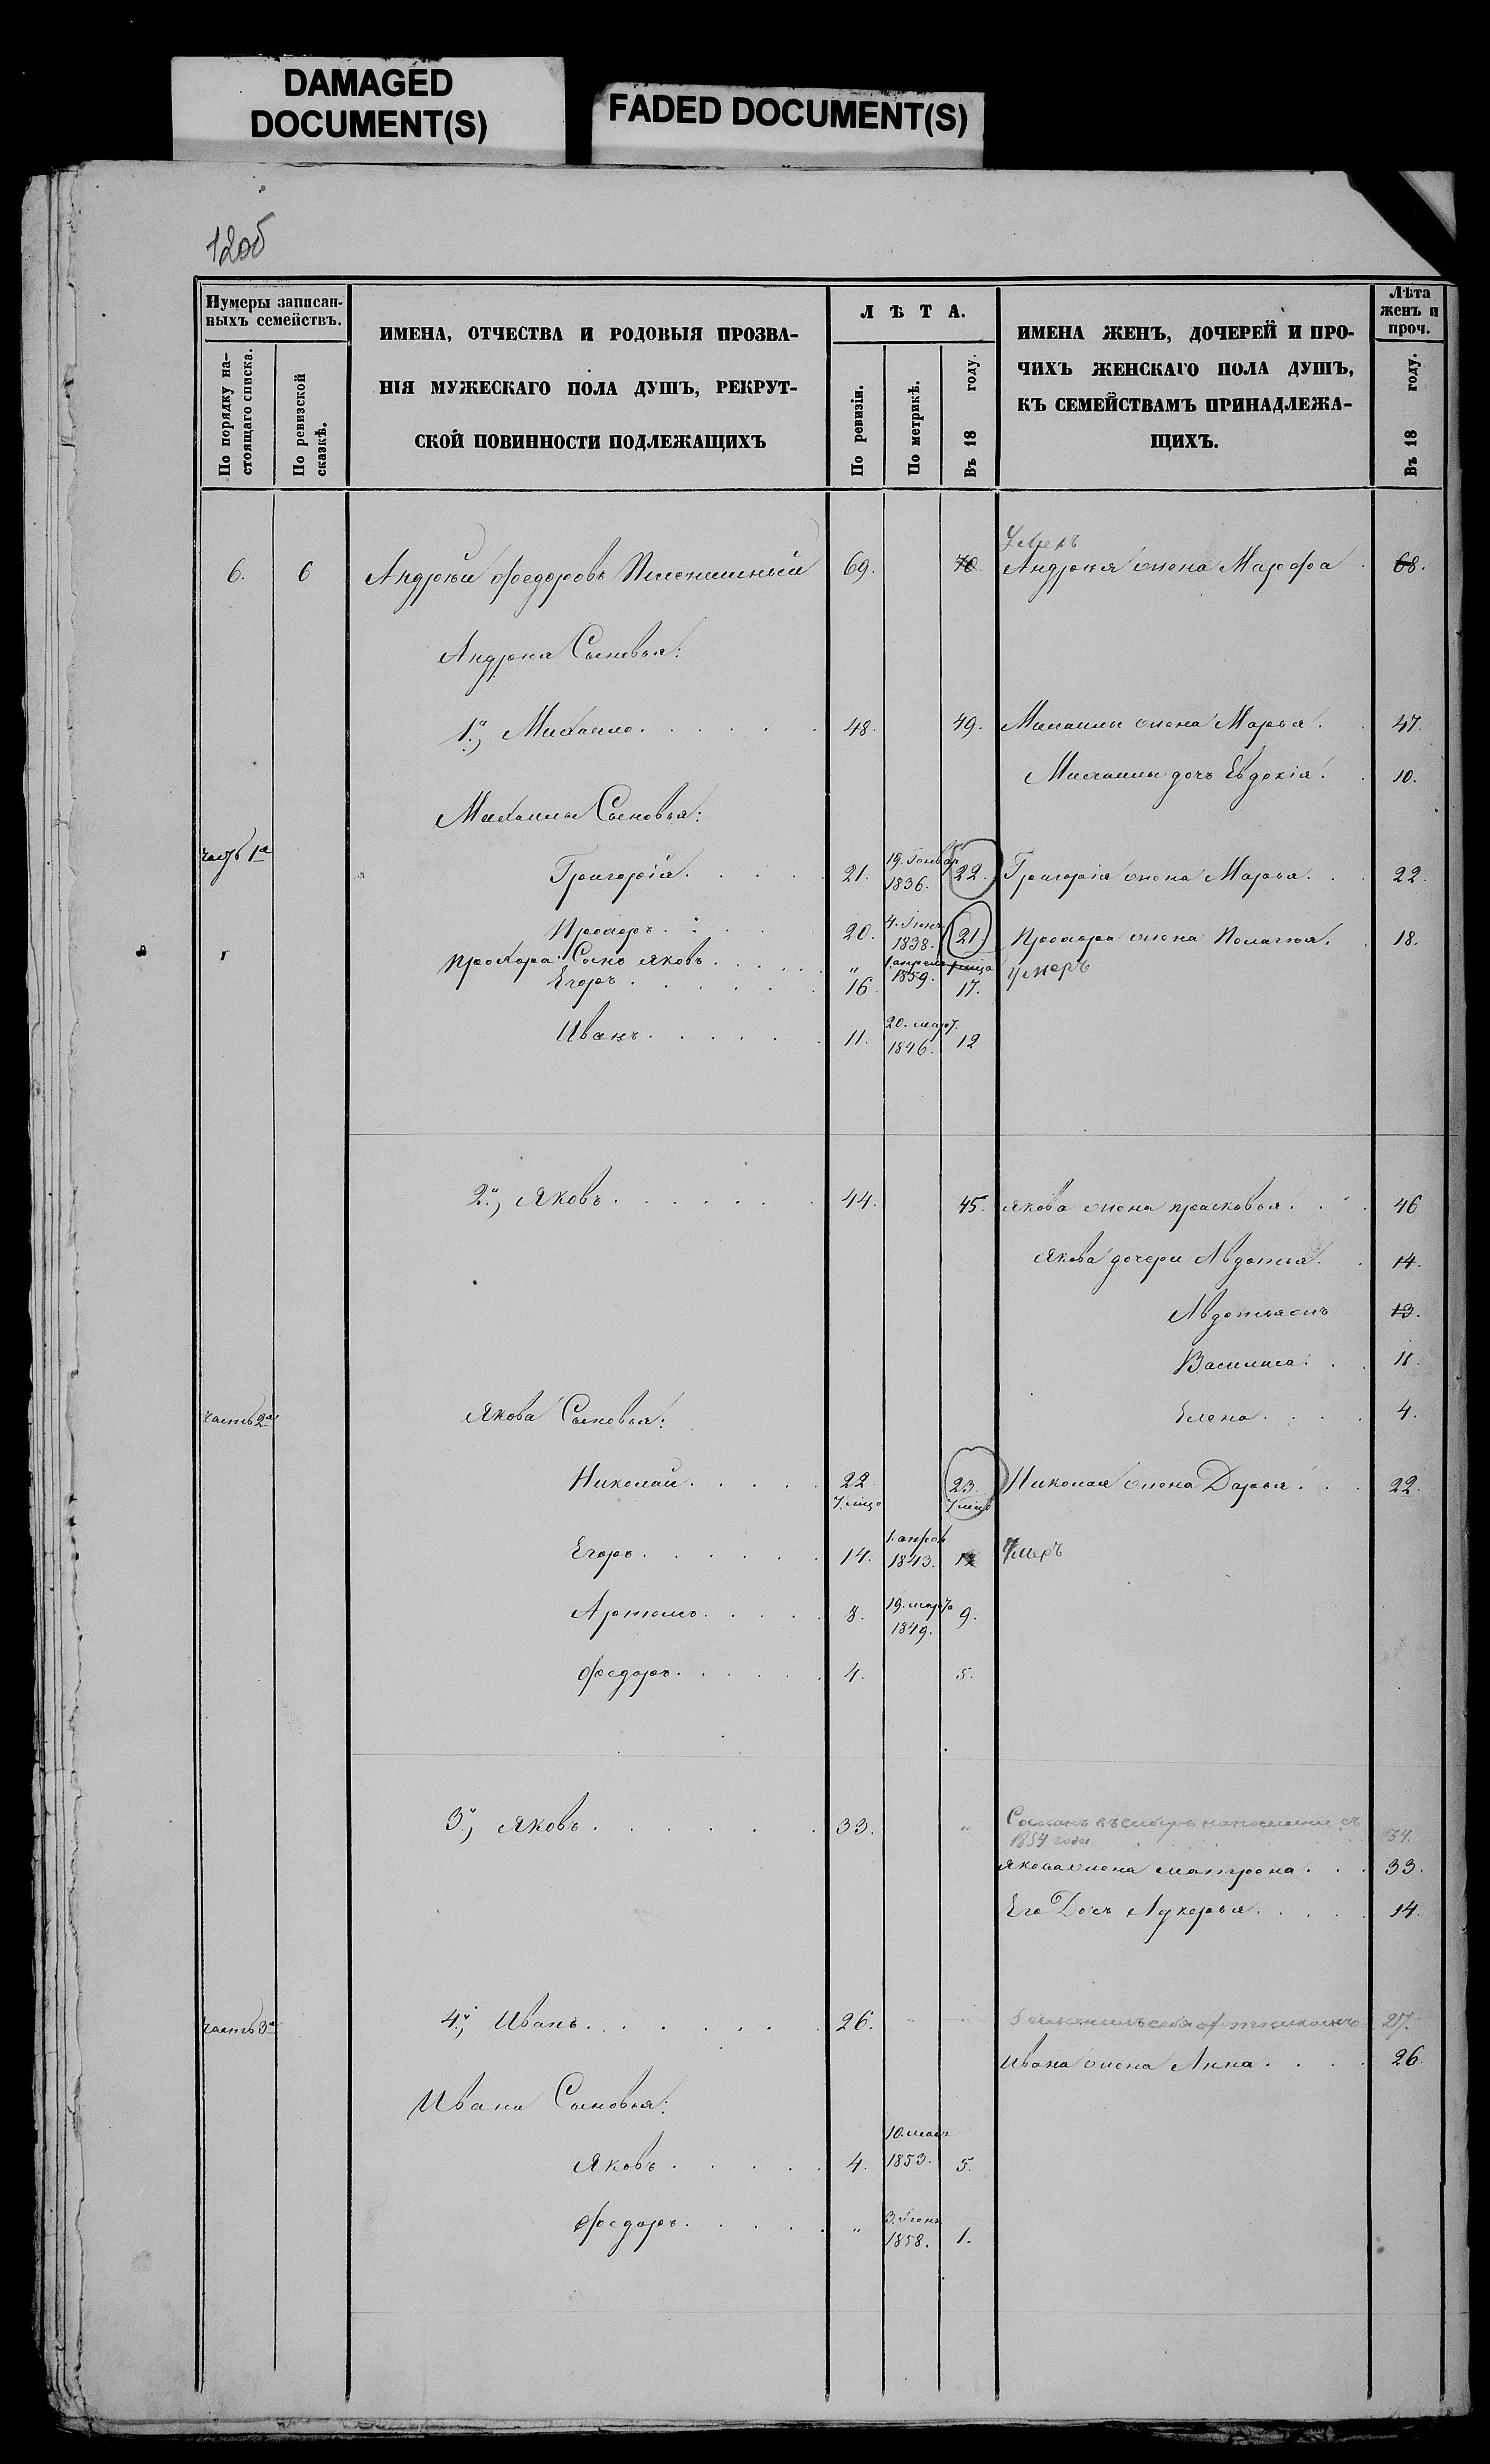 DAMAGED
DOCUMENT(S)
FADED DOCUMENT(S)
12об
Нумеры записан-
ныхъ семействъ.
По порядку на-
стоящаго списка.
По ревизской
сказкѣ.
ИМЕНА, ОТЧЕСТВА И РОДОВЫЯ ПРОЗВА-
НІЯ МУЖЕСКАГО ПОЛА ДУШЪ, РЕКРУТ-
СКОЙ ПОВИННОСТИ ПОДЛЕЖАЩИХЪ
ЛѢТА.
По ревизіи.
По метрикѣ.
Въ 18 году.
ИМЕНА ЖЕНЪ, ДОЧЕРЕЙ И ПРО-
ЧИХЪ ЖЕНСКАГО ПОЛА ДУШЪ,
КЪ СЕМЕЙСТВАМЪ ПРИНАДЛЕЖА-
ЩИХЪ.
Лѣта
женъ и
проч.
Въ 18 году.
Умеръ
6. 6 Андрѣй Федоровъ 69. 70. Андрѣя жена Марфа 68.
Андрѣя Сыновья:
1й, Михаило 48. 49. Михаилы жена Марья 47.
Михаилы дочь Евдокія 10.
Михаилы Сыновья:
часть 1я
Григорій 21. 19. Генвар 1836. 22. Григорія жена Марья 22.
Прохоръ 20. 4. 1838. 21. Прохора жена Пелагея 18.
Прохора Сынъ Яковъ " 1. апрель 1859. умеръ
Егоръ 16 17.
Иванъ 11. 20. март. 1846. 12
2й, Яковъ 44. 45. Якова жена Прасковья 46
Якова дочери Авдотья 14.
Авдотья 13.
Василиса 11.
часть 2я Якова Сыновья: Елена 4.
Николай 22 7 мцо 23. 7 мцо Николая жена Дарья 22.
Егоръ 14. 1. апрѣл 1843. Умеръ
Артемъ 8. 19. марта 1849. 9.
Федоръ 4. 5.
3й, Яковъ 33. " Сосланъ въ Сибирь на поселеніе съ
1854 года 34.
Якова жена Матрона 33.
Его Дочь Лукерья 14.
часть 3я 4й, Иванъ 26. 27.
Ивана жена Анна 26.
Ивана Сыновья:
Яковъ 4. 10. 1853. 5.
Федоръ " 3. 1858. 1.